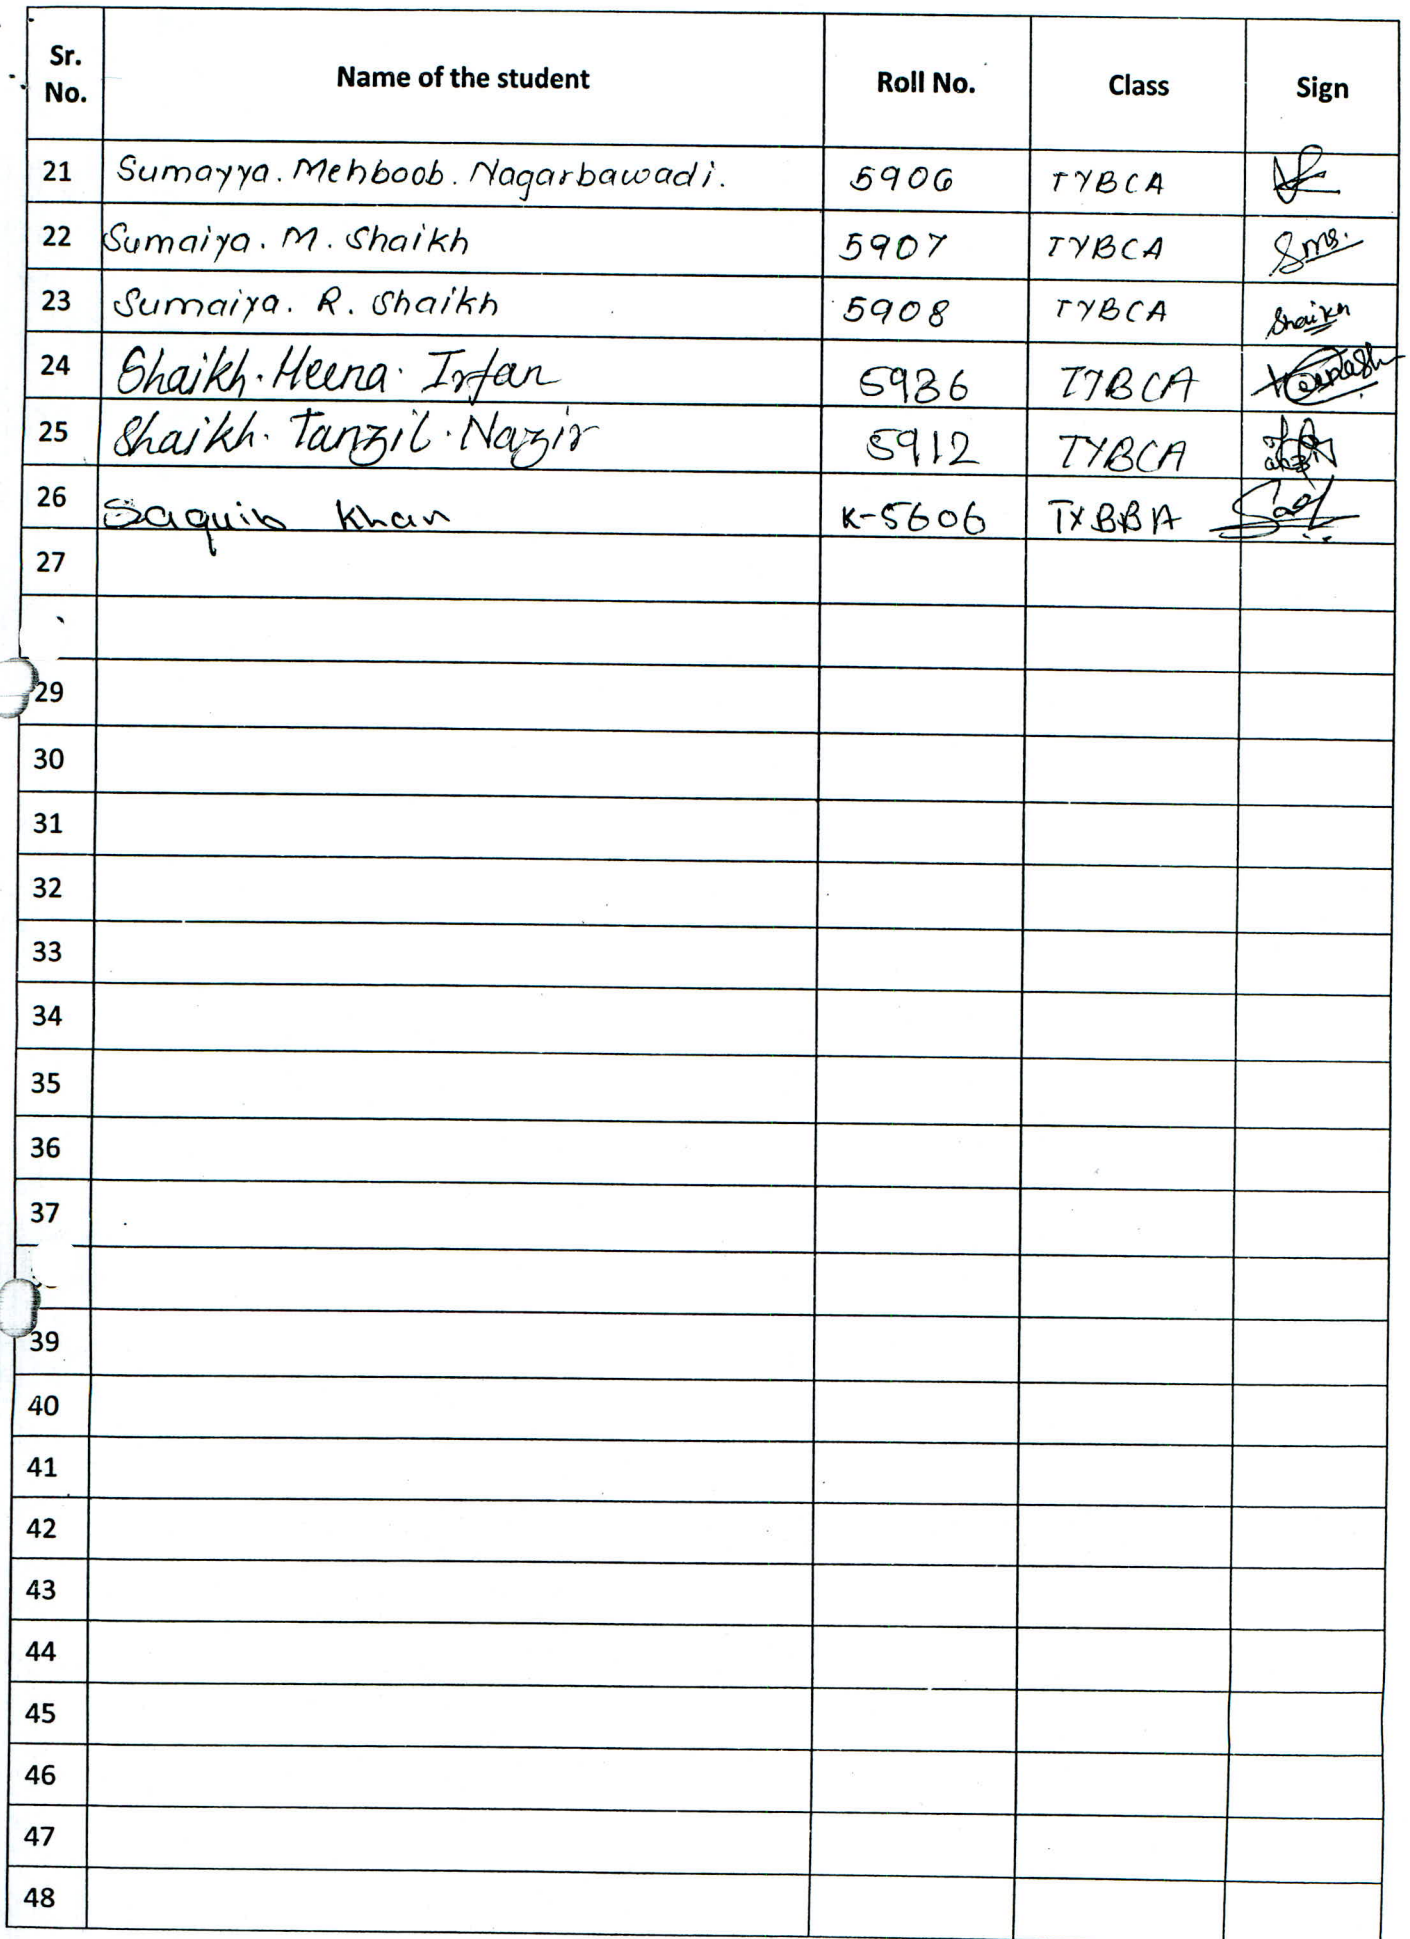 Sr. No. Name of the student Roll No. Class Sign
21 Sumayya. Mehboob. Nagarbawadi. 5906 TYBCA
22 Sumaiya. M. Shaikh 5907 TYBCA
23 Sumaiya. R. Shaikh 5908 TYBCA Shaikh
24 Shaikh. Heena. Irfan 5936 TYBCA
25 Shaikh. Tanzil. Nazir 5912 TYBCA
26 Saquib Khan K-5606 TYBBA
27
29
30
31
32
33
34
35
36
37
39
40
41
42
43
44
45
46
47
48